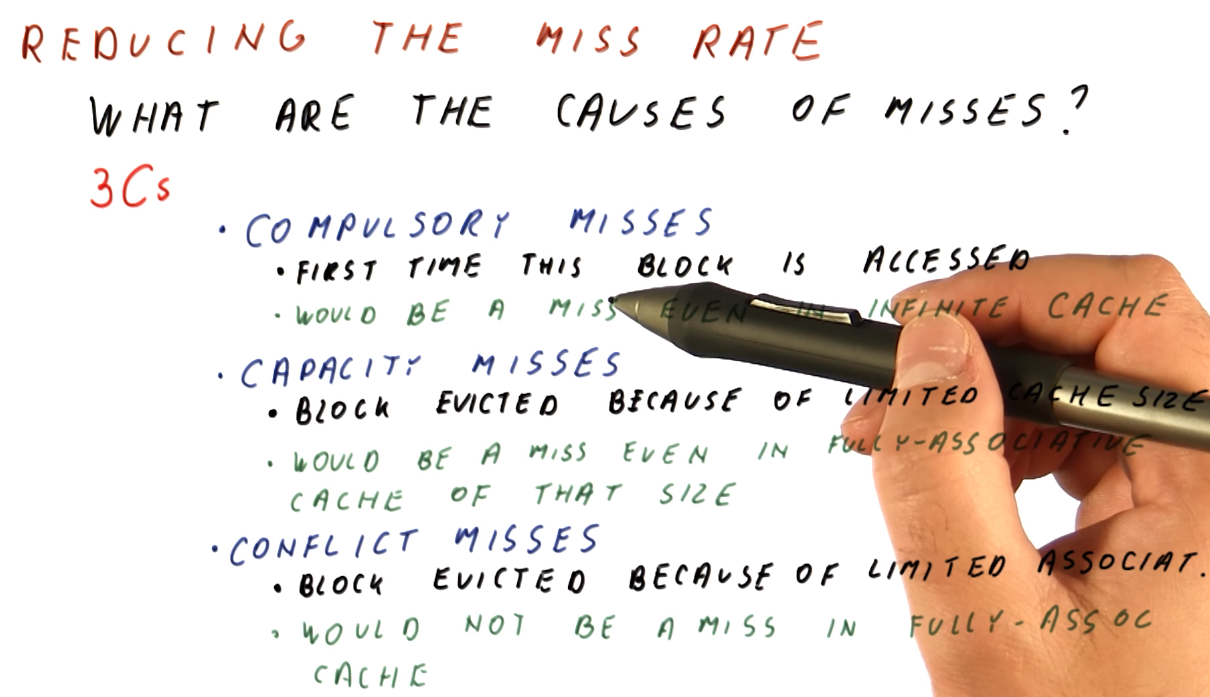 REDUCING THE MISS RATE
WHAT ARE THE CAUSES OF MISSES?
3Cs
• COMPULSORY MISSES
• FIRST TIME THIS BLOCK IS ACCESSED
• WOULD BE A MISS EVEN IN INFINITE CACHE
• CAPACITY MISSES
• BLOCK EVICTED BECAUSE OF LIMITED CACHE SIZE
• WOULD BE A MISS EVEN IN FULLY-ASSOCIATIVE
CACHE OF THAT SIZE
• CONFLICT MISSES
• BLOCK EVICTED BECAUSE OF LIMITED ASSOCIAT.
• WOULD NOT BE A MISS IN FULLY-ASSOC
CACHE